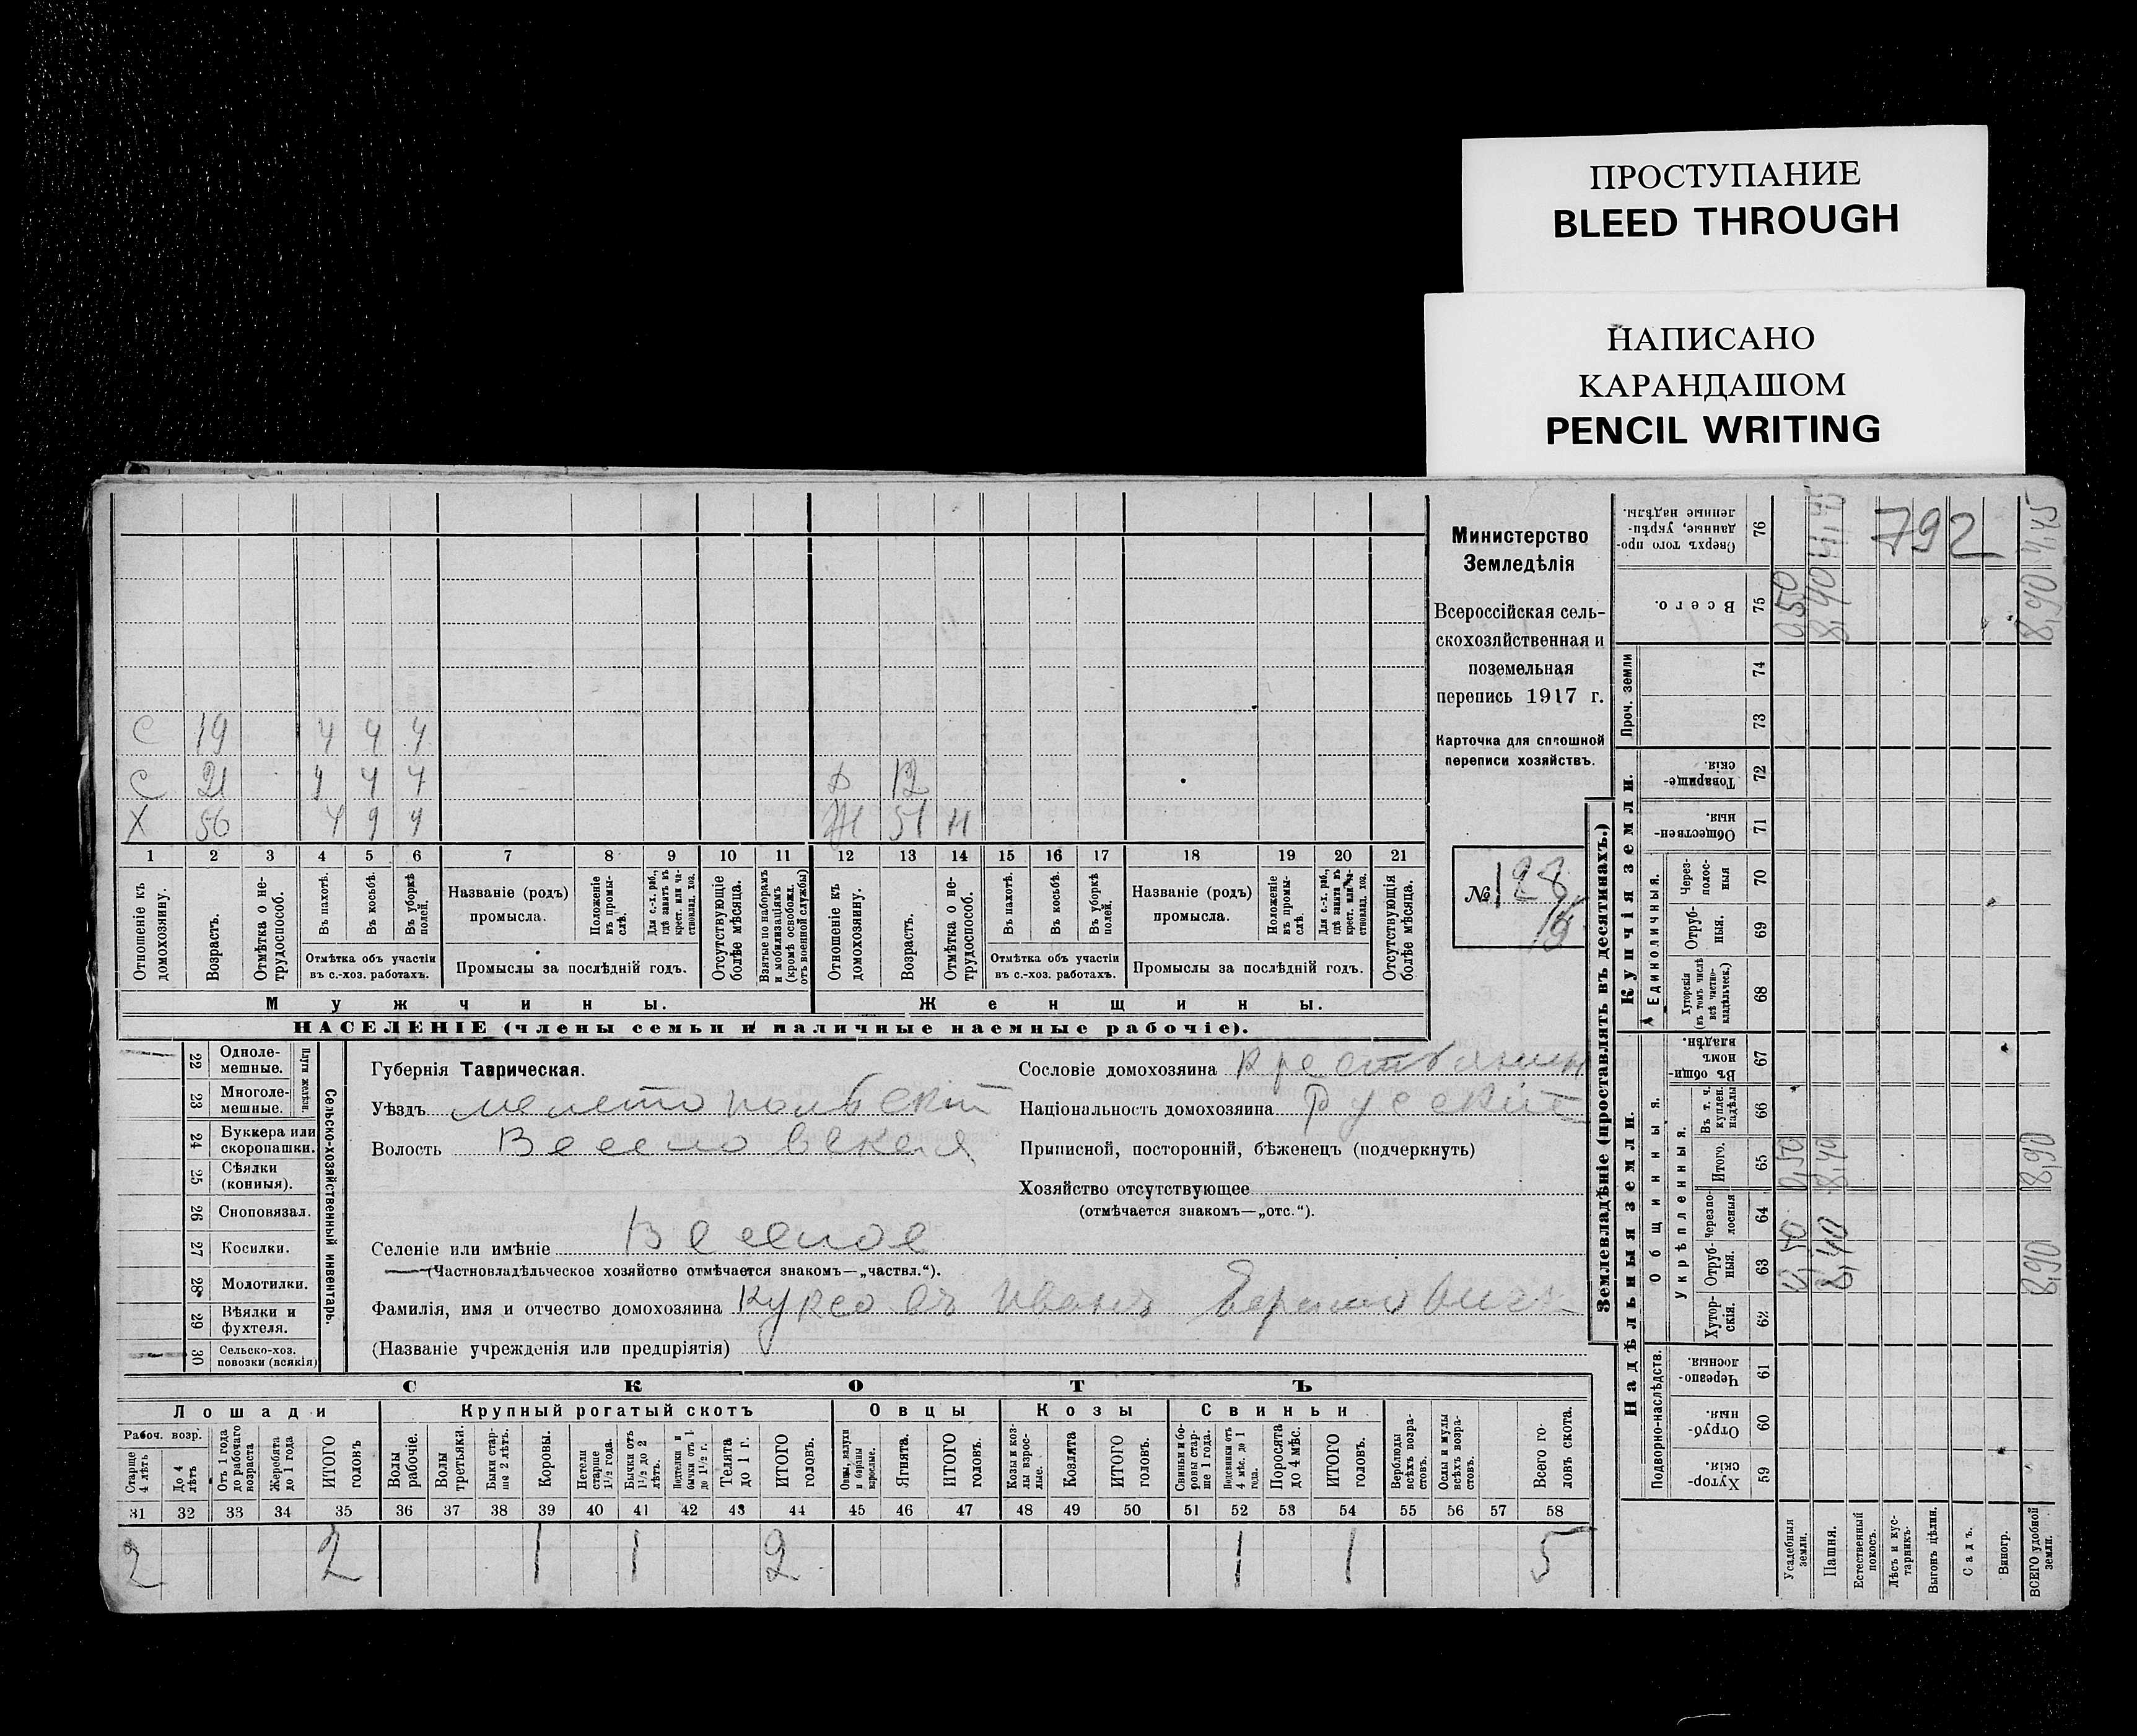 ПРОСТУПАНИЕ
BLEED THROUGH
НАПИСАНО
КАРАНДАШОМ
PENCIL WRITING
Министерство
Земледѣлія
Всероссійская сель-
скохозяйственная и
поземельная
перепись 1917 г.
Карточка для сплошной
переписи хозяйствъ.
№ 128
С 19 ч ч ч
С 21 ч ч ч
Х 56 ч ч ч
Д 12
Ж 51 н
1 2 3 4 5 6 7 8 9 10 11 12 13 14 15 16 17 18 19 20 21
Отношеніе къ домохозяину.
Возрастъ.
Отмѣтка о не-трудоспособ.
Въ пахотѣ.
Въ косьбѣ.
Въ уборкѣ полей.
Отмѣтка объ участіи
въ с.-хоз. работахъ.
Названіе (родъ)
промысла.
Положеніе въ промы-слѣ.
Для с.-х. раб., гдѣ занятъ въ крест. или ча-ствовлад. хоз.
Промыслы за послѣдній годъ.
Отсутствующіе болѣе мѣсяца.
Взятые по наборамъ и мобилизаціямъ (кромѣ освобожд. отъ военной службы)
Отношеніе къ домохозяину.
Возрастъ.
Отмѣтка о не-трудоспособ.
Въ пахотѣ.
Въ косьбѣ.
Въ уборкѣ полей.
Отмѣтка объ участіи
въ с.-хоз. работахъ.
Названіе (родъ)
промысла.
Положеніе въ промы-слѣ.
Для с.-х. раб., гдѣ занятъ въ крест. или ча-ствовлад. хоз.
Промыслы за послѣдній годъ.
Отсутствующія болѣе мѣсяца.
Мужчины. Женщины.
НАСЕЛЕНІЕ (члены семьи и наличные наемные рабочіе).
Сельско-хозяйственный инвентарь.
Плуги желѣзн.
22 Одноле-мешные.
23 Многоле-мешные.
24 Буккера или скоропашки.
25 Сѣялки (конныя).
26 Сноповязал.
27 Косилки.
28 Молотилки.
29 Вѣялки и фухтеля.
30 Сельско-хоз. повозки (всякія)
Губернія Таврическая.
Уѣздъ Мелитопольскій
Волость Веселовская
Селеніе или имѣніе Веселое
(Частновладѣльческое хозяйство отмѣчается знакомъ—„частвл.“).
Фамилія, имя и отчество домохозяина Куксовъ Иванъ
(Названіе учрежденія или предпріятія)
Сословіе домохозяина Крестьянин
Національность домохозяина Русскій
Приписной, посторонній, бѣженецъ (подчеркнуть)
Хозяйство отсутствующее
(отмѣчается знакомъ—„отс.“).
СКОТЪ
Лошади Крупный рогатый скотъ Овцы Козы Свиньи
Рабоч. возр.
Старше 4 лѣтъ
До 4 лѣтъ
Отъ 1 года до рабочаго возраста
Жеребята до 1 года
ИТОГО головъ
Волы рабочіе.
Волы третьяки.
Быки стар-ше 2 лѣтъ.
Коровы.
Нетели старше 1½ года.
Бычки отъ 1½ до 2 лѣтъ.
Подтелки и бычки отъ 1 до 1½ г.
Телята до 1 г.
ИТОГО головъ.
Овцы, валухи и бараны взрослые.
Ягнята.
ИТОГО головъ.
Козы и коз-лы взрос-лые.
Козлята
ИТОГО головъ.
Свиньи и бо-ровы стар-ше 1 года.
Подсвинки отъ 4 мѣс. до 1 года.
Поросята до 4 мѣс.
ИТОГО головъ.
Верблюды всѣхъ возра-стовъ.
Ослы и мулы всѣхъ возра-стовъ.
Всего го-ловъ скота.
31 32 33 34 35 36 37 38 39 40 41 42 43 44 45 46 47 48 49 50 51 52 53 54 55 56 57 58
2 2 1 1 2 1 1 5
Землевладѣніе (проставлять въ десятинахъ.)
Надѣльныя земли.
Купчія земли.
Проч. земли
Подворно-наслѣдств.
Общинныя.
Укрѣпленныя.
Единоличныя.
Сверхъ того про-данные, укрѣп-ленные надѣлы. 76
Всего. 75
74
73
Товарище-скія. 72
Обществен-ныя. 71
Через-полос-ныя 70
Отруб-ныя. 69
Хуторскія (въ томъ числѣ всѣ частно-владѣльческ.) 68
Въ общин-номъ владѣн. 67
Въ т. ч. куплен. надѣлы 66
Итого. 65
Черезпо-лосныя 64
Отруб-ныя. 63
Хутор-скія. 62
Черезпо-лосныя. 61
Отруб-ныя. 60
Хутор-скія. 59
Усадебныя земли.
Пашня.
Естественный покосъ.
Лѣсъ и кус-тарникъ.
Выгонъ цѣлин.
Садъ.
Виногр.
ВСЕГО удобной земли.
792
0,50 0,50 0,50
8,40 8,40 8,40 4,45
8,90 8,90 8,90 4,45